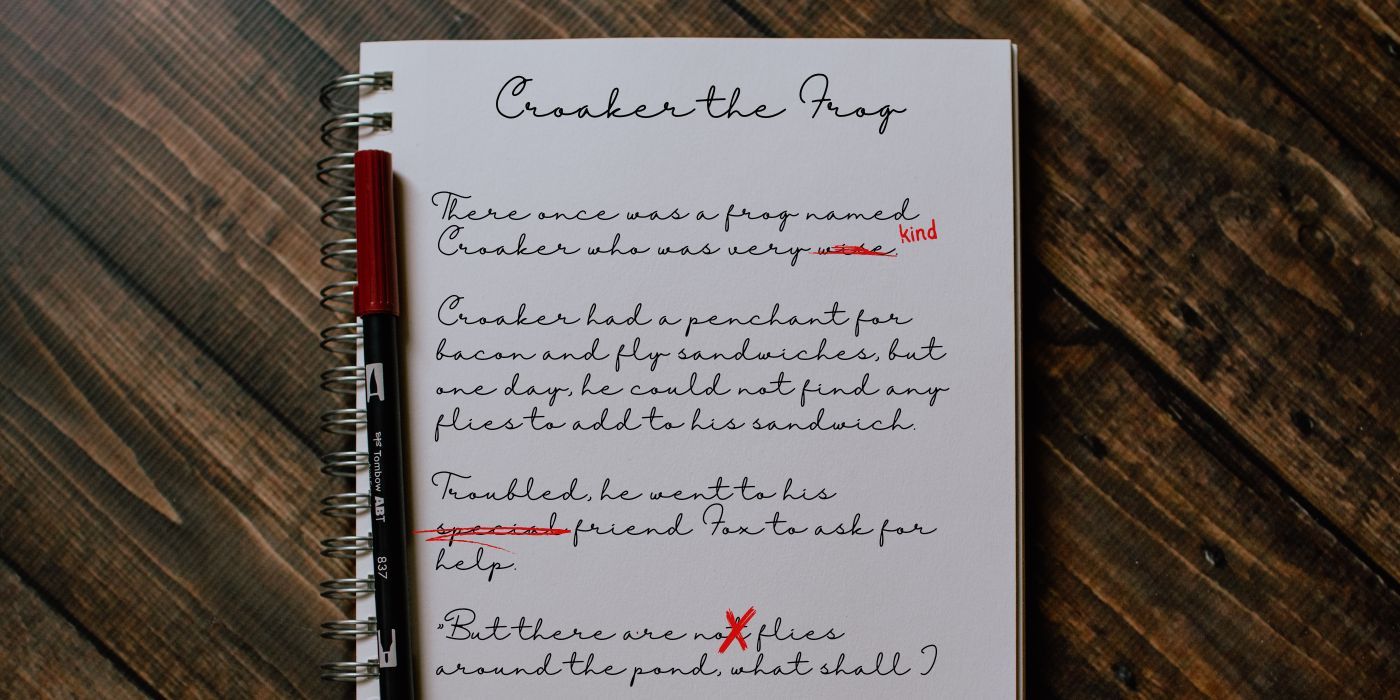 Croaker the Frog
There once was a frog named
Croaker who was very wise. kind
Croaker had a penchant for
bacon and fly sandwiches, but
one day, he could not find any
flies to add to his sandwich.
Troubled, he went to his
special friend Fox to ask for
help.
"But there are not flies
around the pond, what shall I
Tombow ABT
837